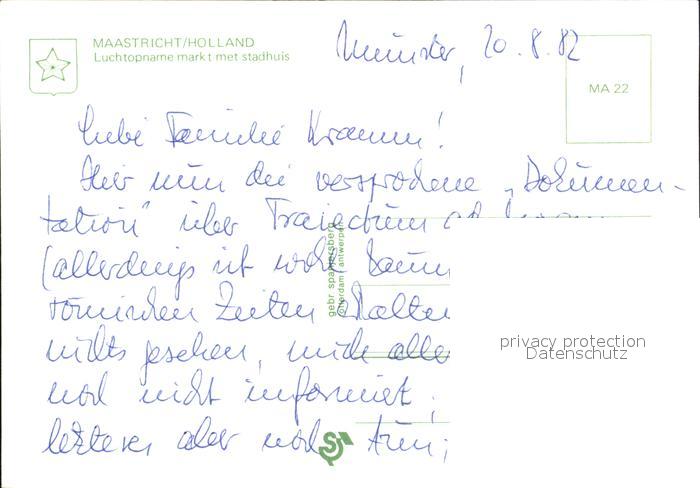 MAASTRICHT/HOLLAND
Luchtopname markt met stadhuis
Münster, 20.8.82
MA 22
Liebe Familie Kramm!
Hier nun die versprochene „Dokumen-
tation" über Trajectum ad
(allerdings ist wohl kaum
römischen Zeiten erhalten
nichts gesehen, mich aller
noch nicht informiert;
letzteres aber noch tun;
gebr spanjersberg
rotterdam/antwerpen
privacy protection
Datenschutz